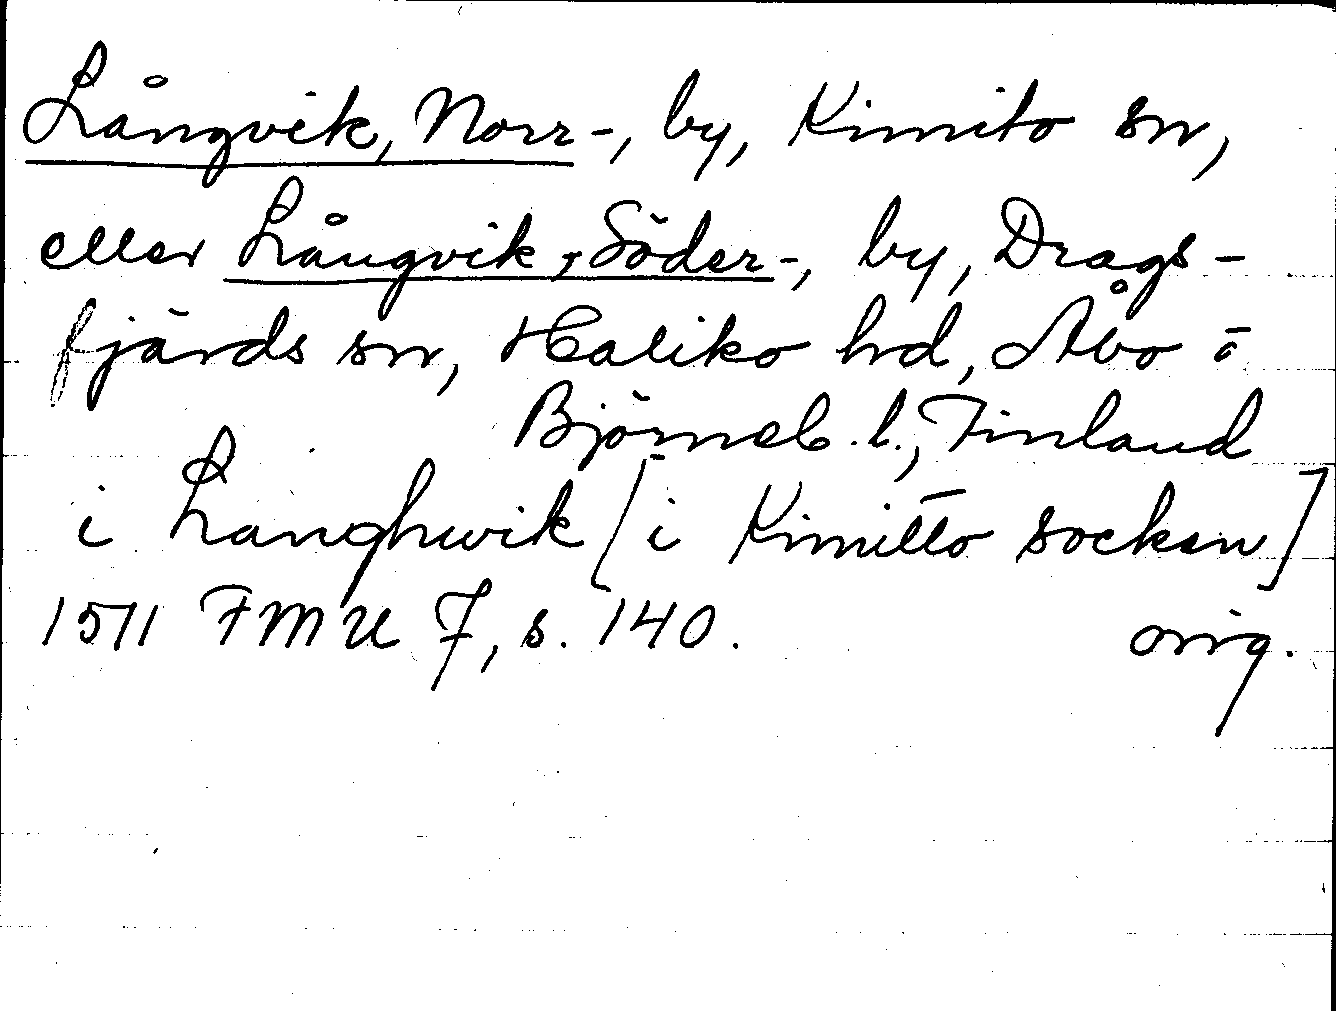 Långvik, Norr-, by, Kimito sn,
eller Långvik, Söder-, by, Drags-
fjärds sn, Haliko hd, Åbo o
Björneb. l., Finland
i Langhwik [i Kimitto socken]
1511 FMU 7, s. 140. orig.